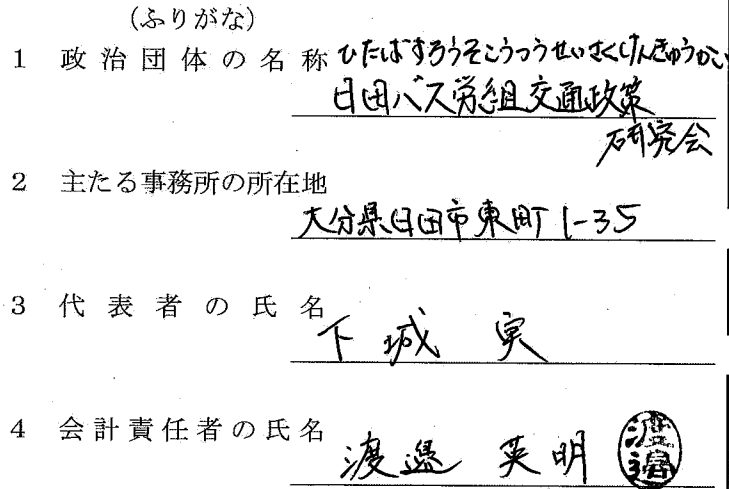 (ふりがな)
1 政治団体の名称 ひたばすろうそこうつうせいさくけんきゅうかい
日田バス労組交通政策
研究会
2 主たる事務所の所在地
大分県日田市東町1-35
3 代表者の氏名
下城 実
4 会計責任者の氏名
渡邉 英明 渡邉